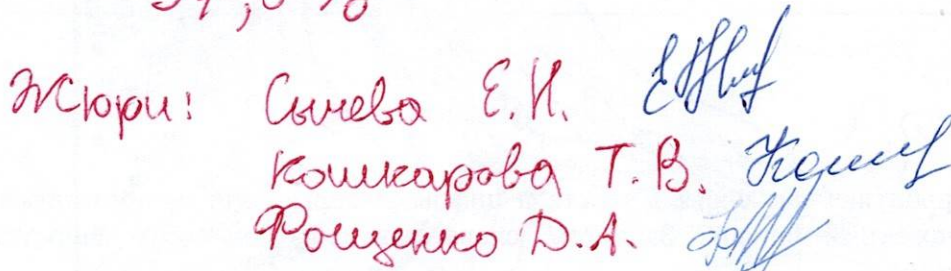 Жюри: Сычева Е.Н.
Кошкарова Т.В.
Фощенко D.А.